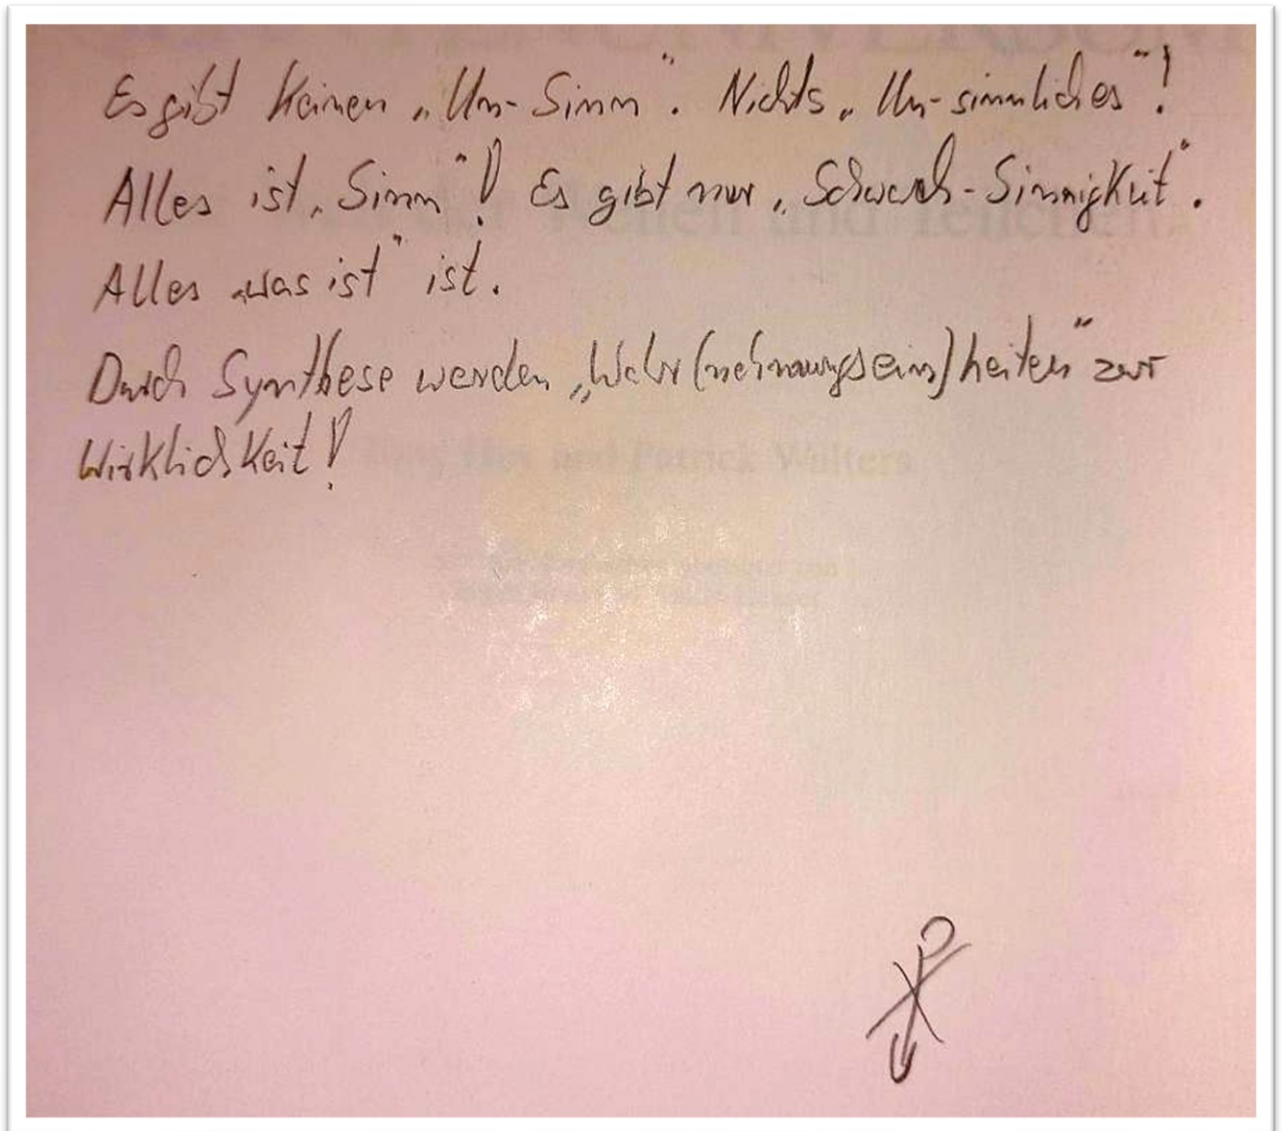 Es gibt keinen „Un-Sinn". Nichts „Un-sinnliches"!
Alles ist „Sinn"! Es gibt nur „Schwach-Sinnigkeit".
Alles „was ist" ist.
Durch Synthese werden „Wahr(nehmungsein)heiten" zur
Wirklichkeit!
Tony Hey and Patrick Walters